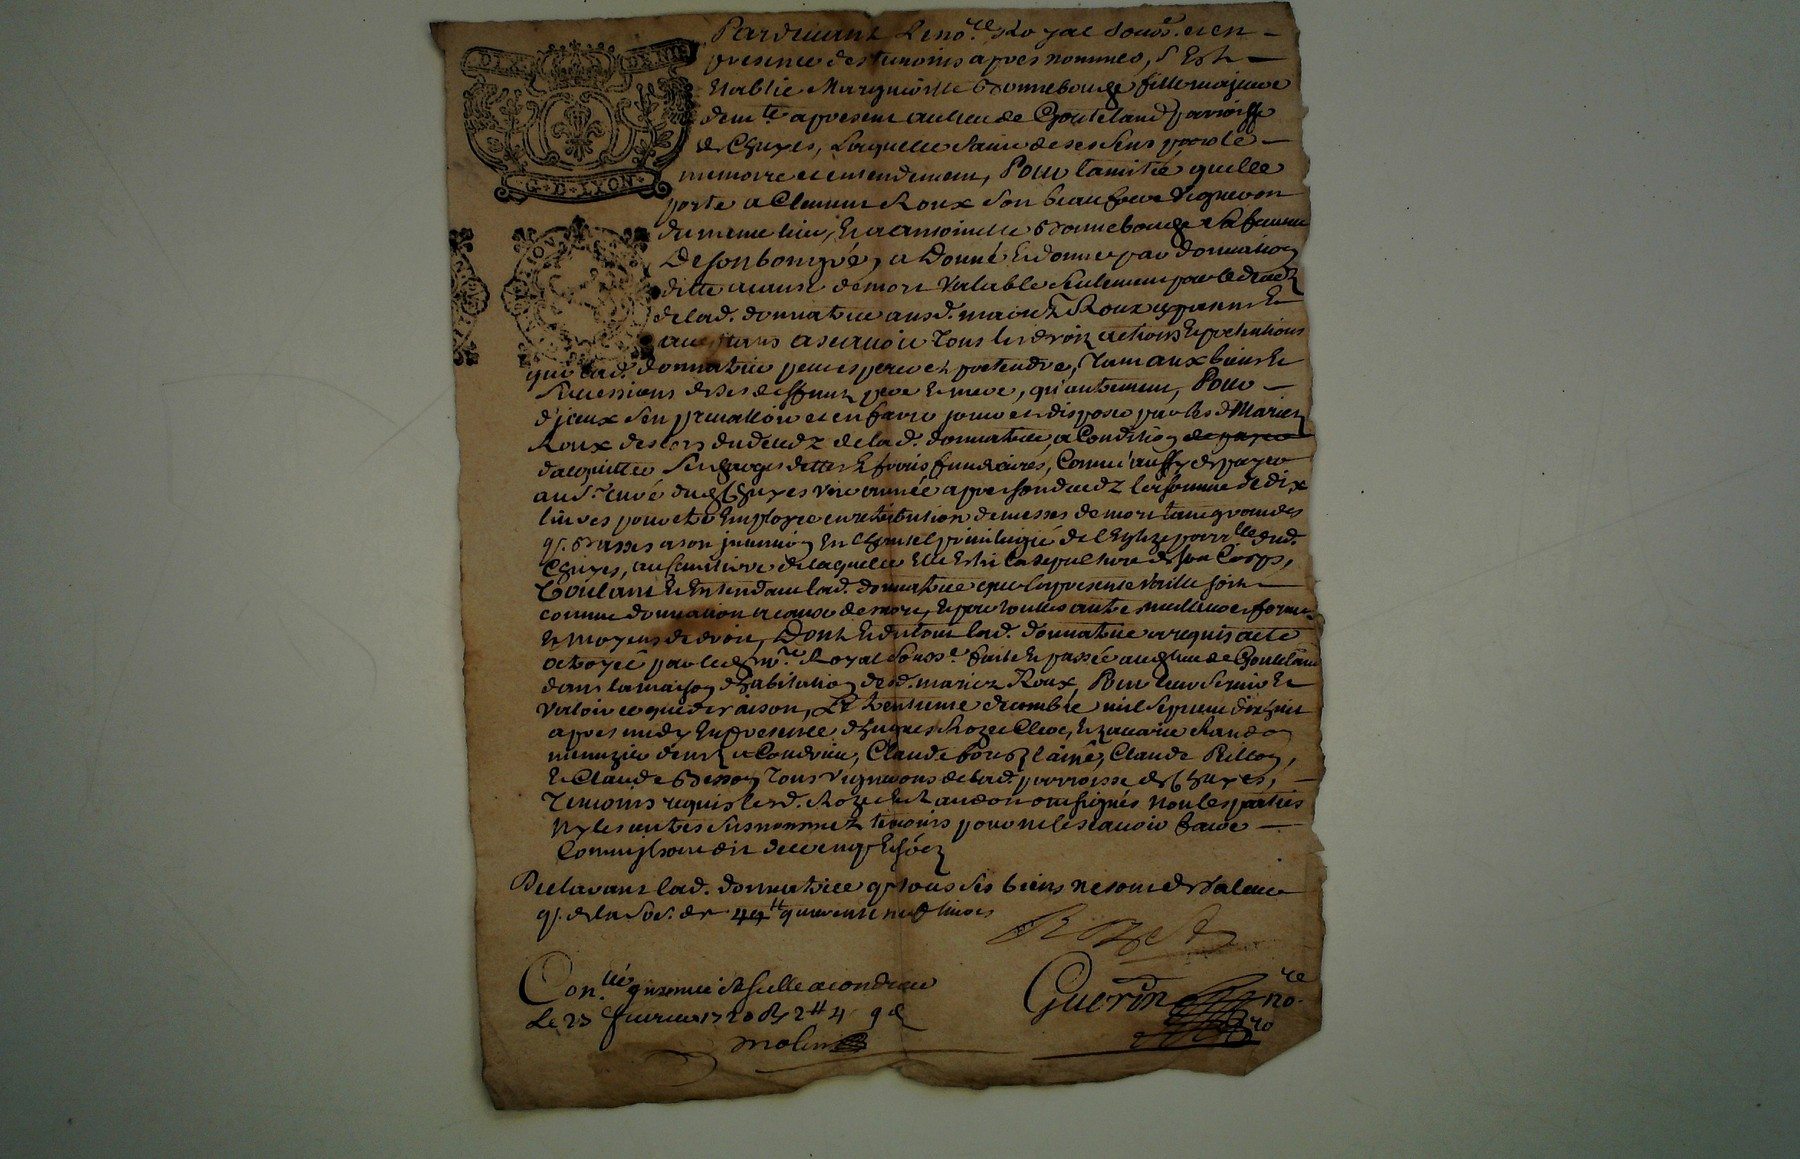 DIX DENIE
G·D·LYON
Pardevant le no.re Royal sous.é et en
presence des temoins apres nommes, s'est
etablie Margueritte Bonnebouche fille majeure
dem.te a present au lieu de Gouteland parroisse
de Chuyes, laquelle saine de ses sens parole
memoire et entendement, Pour l'amitié quelle
porte a Clement Roux son beau frere vigneron
du meme lieu, et a Antoinette Bonnebouche sa femme
De son bon gré, a Donné et donne par donnation
ditte a cause de mort valable seulement par le decez
de lad. donnatrice ausd. mariez Roux
a scavoir tous les droits actions et pretentions
que lad. donnatrice peut esperer et pretendre, tant aux biens et
successions de ses deffunts pere et mere, qu'autrement, Pour
d'iceux s'en prevalloir et en faire jouir et disposer par lesd. Mariez
Roux des lors du decez de lad. donnatrice, a Condition
d'acquitter ses charges dettes et frais funeraires, comm'aussy de payer
au s.r curé dud. Chuyes une année apres son decez la somme de dix
livres pour etre employée en retribution de messes de mort tant grandes
q. basses a son intention en l'hautel privilegié de l'Eglise parr.lle dud.
Chuyes, au cimetiere de laquelle elle eslit la sepulture de son Corps,
Voulant et entendant lad. donnatrice que la presente vaille soit
comme donnation a cause de mort, et par toutes autres meilleures formes
et moyens de droit, Dont et du tout lad. donnatrice a requis acte
octroyé par led. no.re Royal souss.é fait et passé aud. lieu de Gouteland
dans la maison d'habitation desd. mariez Roux, Pour leur servir et
valoir ce que de raison, Le trentieme decembre mil sept cent dix huit
apres midy en presence d'hugues Rozet Clerc, et zacarie Randon
menuzier dem.t a Condrieu, Claude l'ainé, Claude Rillon,
et Claude Besson tous vignerons de lad. parroisse de Chuyes,
Temoins requis lesd. Rozet et Randon ont signés non les parties
ny les autres susnommez temoins pour ne le scavoir faire
Declarant lad. donnatrice q. tous ses biens ne sont de valeur
q. de la so.e de 49.tt quarante neuf livres
Rozet
Con.llé et scellé a condrieu
Le 23 fevrier 1720
Guerin no.re
Molin